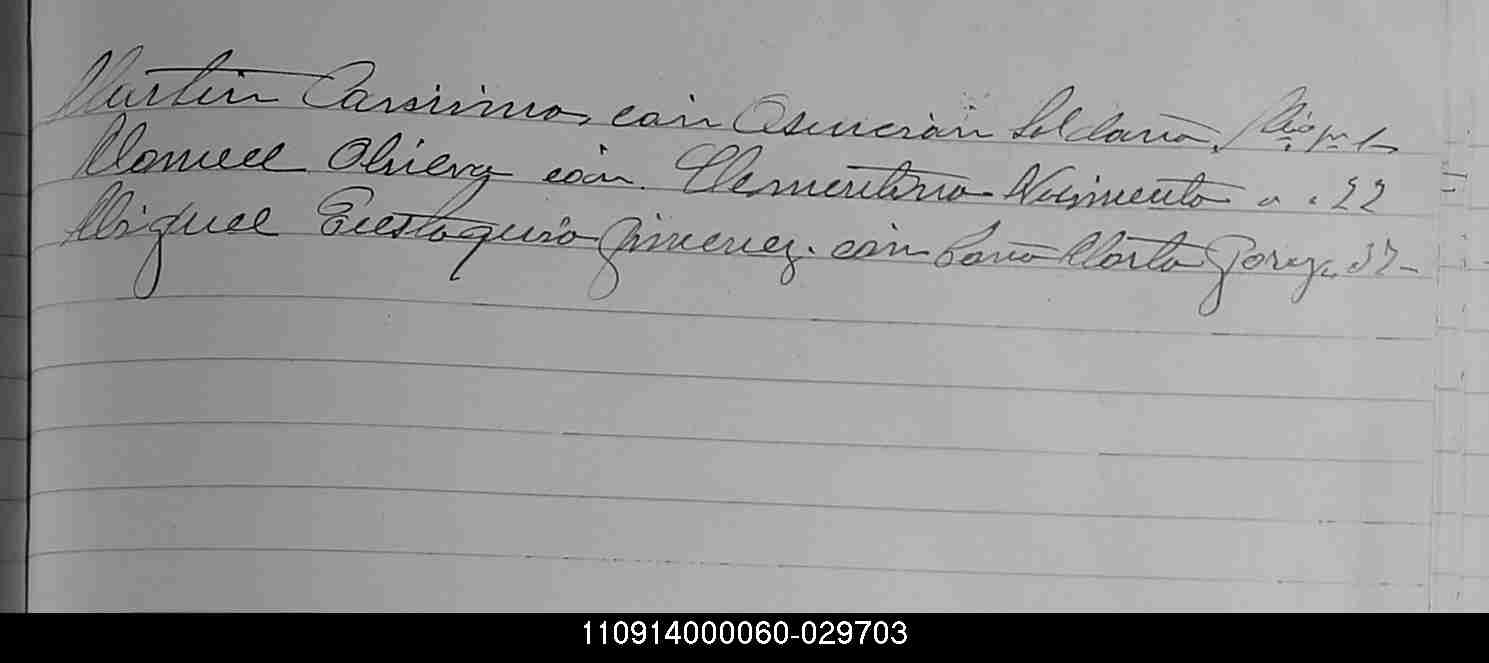 Martin Carsimo, con Asuncion Soldana,
Manuel Olivera con. Clementina Nacimento " . 22
Miguel Eustaquio Jimenez. con Sara Marta Perez. 37-
110914000060-029703